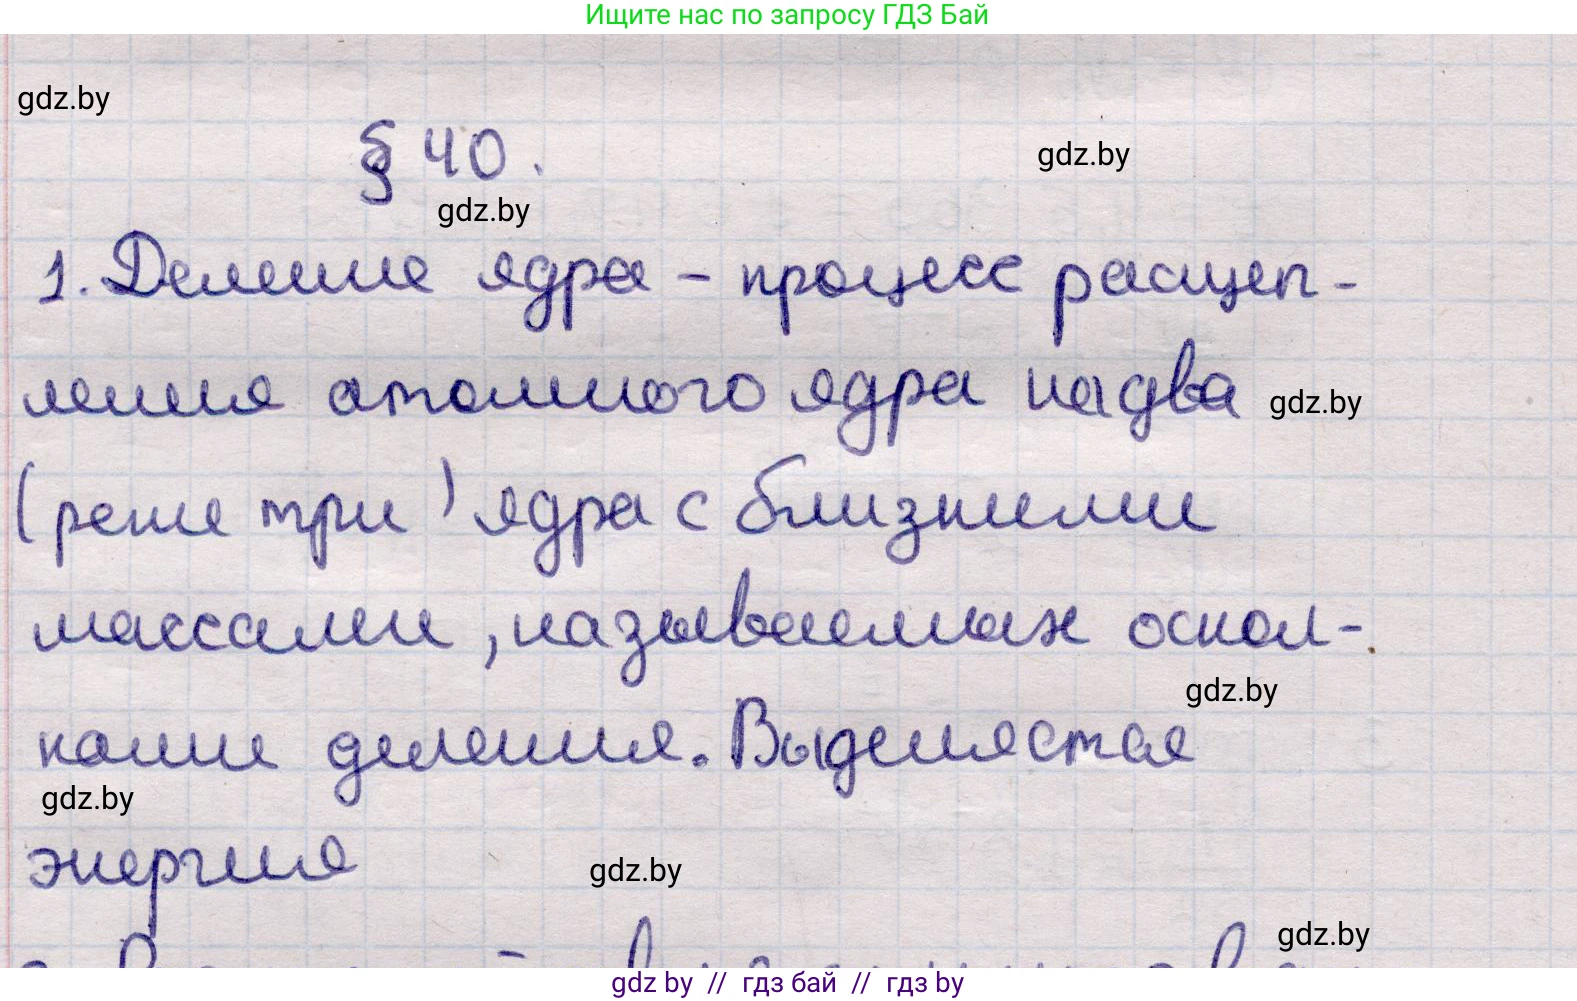 Ищите нас по запросу ГДЗ Бай
gdz.by
§ 40.
gdz.by
gdz.by
1. Деление ядра - процесс расщеп-
ления атомного ядра на два
gdz.by
(реже три) ядра с близкими
массами, называемых оскол-
gdz.by
ками деления. Выделяется
gdz.by
энергия
gdz.by
gdz.by
gdz.by // гдз бай // гдз by